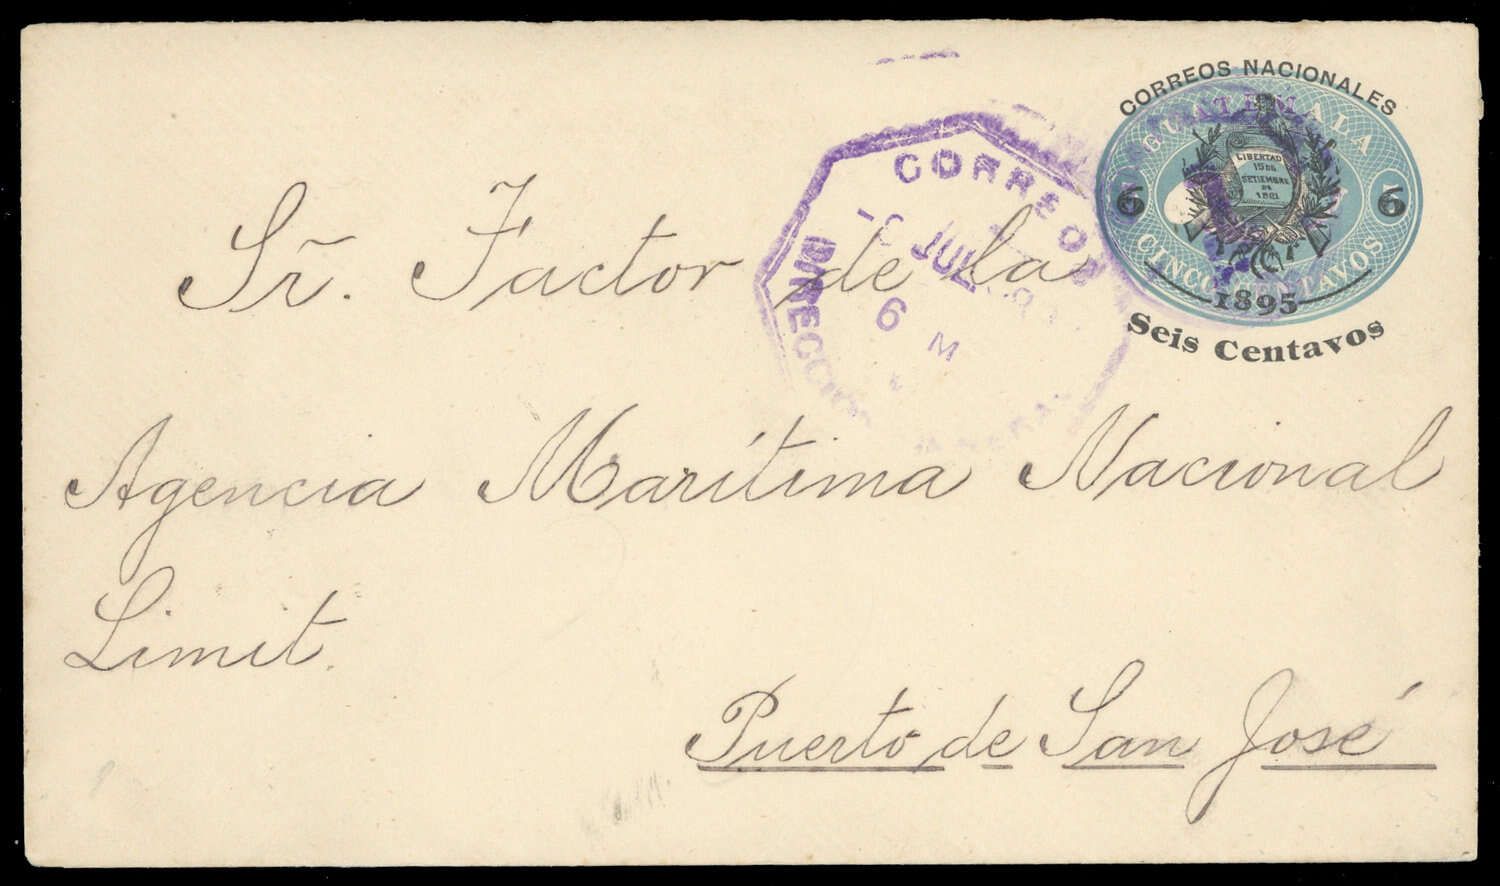 CORREOS NACIONALES
GUATEMALA
LIBERTAD
15 DE
SETIEMBRE
DE
1821
6 6
CINCO CENTAVOS
1895
Seis Centavos
CORREOS
JUL
6 M
DIRECCION GENERAL
Sr. Factor de la
Agencia Marítima Nacional
Limit.
Puerto de San José